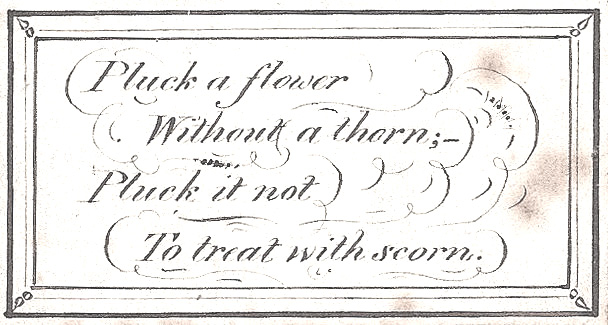 Pluck a flower
Without a thorn;–
Pluck it not
To treat with scorn.